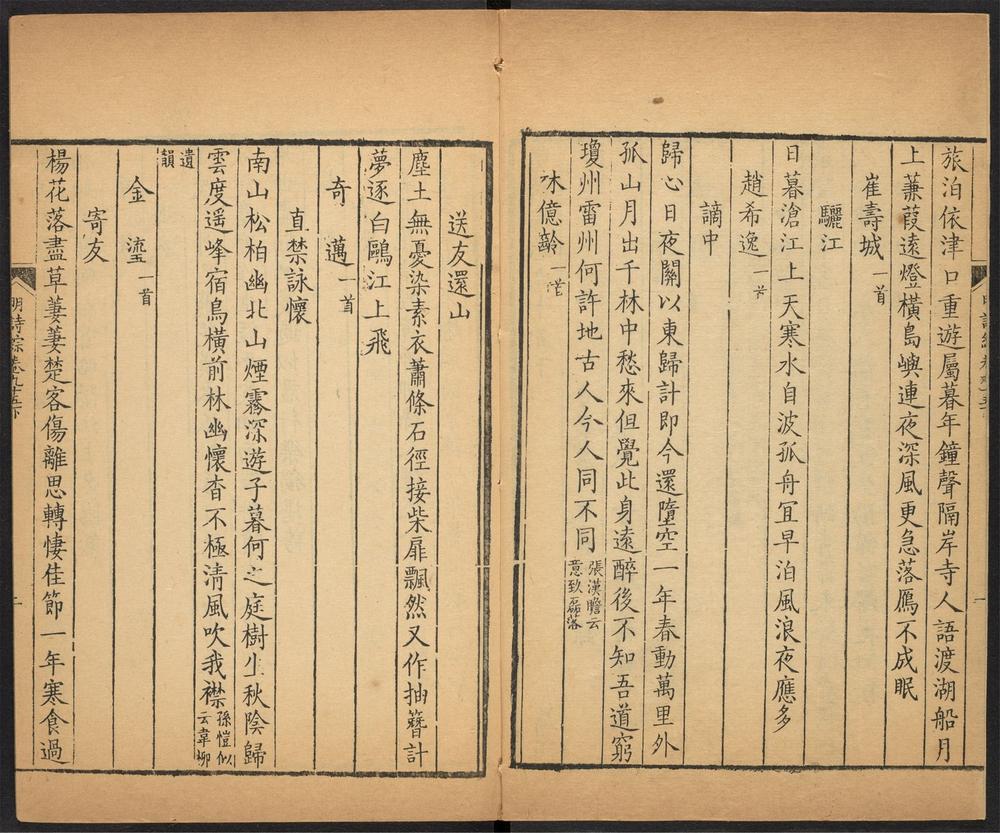 旅泊依津口重遊屬暮年鐘聲隔岸寺人語渡湖船月
上蒹葭遠燈橫島嶼連夜深風更急落鴈不成眠
崔壽城一首
驪江
日暮滄江上天寒水自波孤舟宜早泊風浪夜應多
趙希逸一首
謫中
歸心日夜關以東歸計即今還墮空一年春動萬里外
孤山月出千林中愁來但覺此身遠醉後不知吾道窮
瓊州雷州何許地古人今人同不同張漢瞻云意致磊落
億齡一首
送友還山
塵土無憂染素衣蕭條石徑接柴扉飄然又作抽簪計
夢逐白鷗江上飛
奇邁一首
直禁詠懷
南山松柏幽北山煙霧深遊子暮何之庭樹生秋陰歸
雲度遥峰宿鳥橫前林幽懷杳不極清風吹我襟孫愷似云韋柳
遺韻
金瑬一首
寄友
楊花落盡草萋萋楚客傷離思轉悽佳節一年寒食過
明詩綜卷九十五下